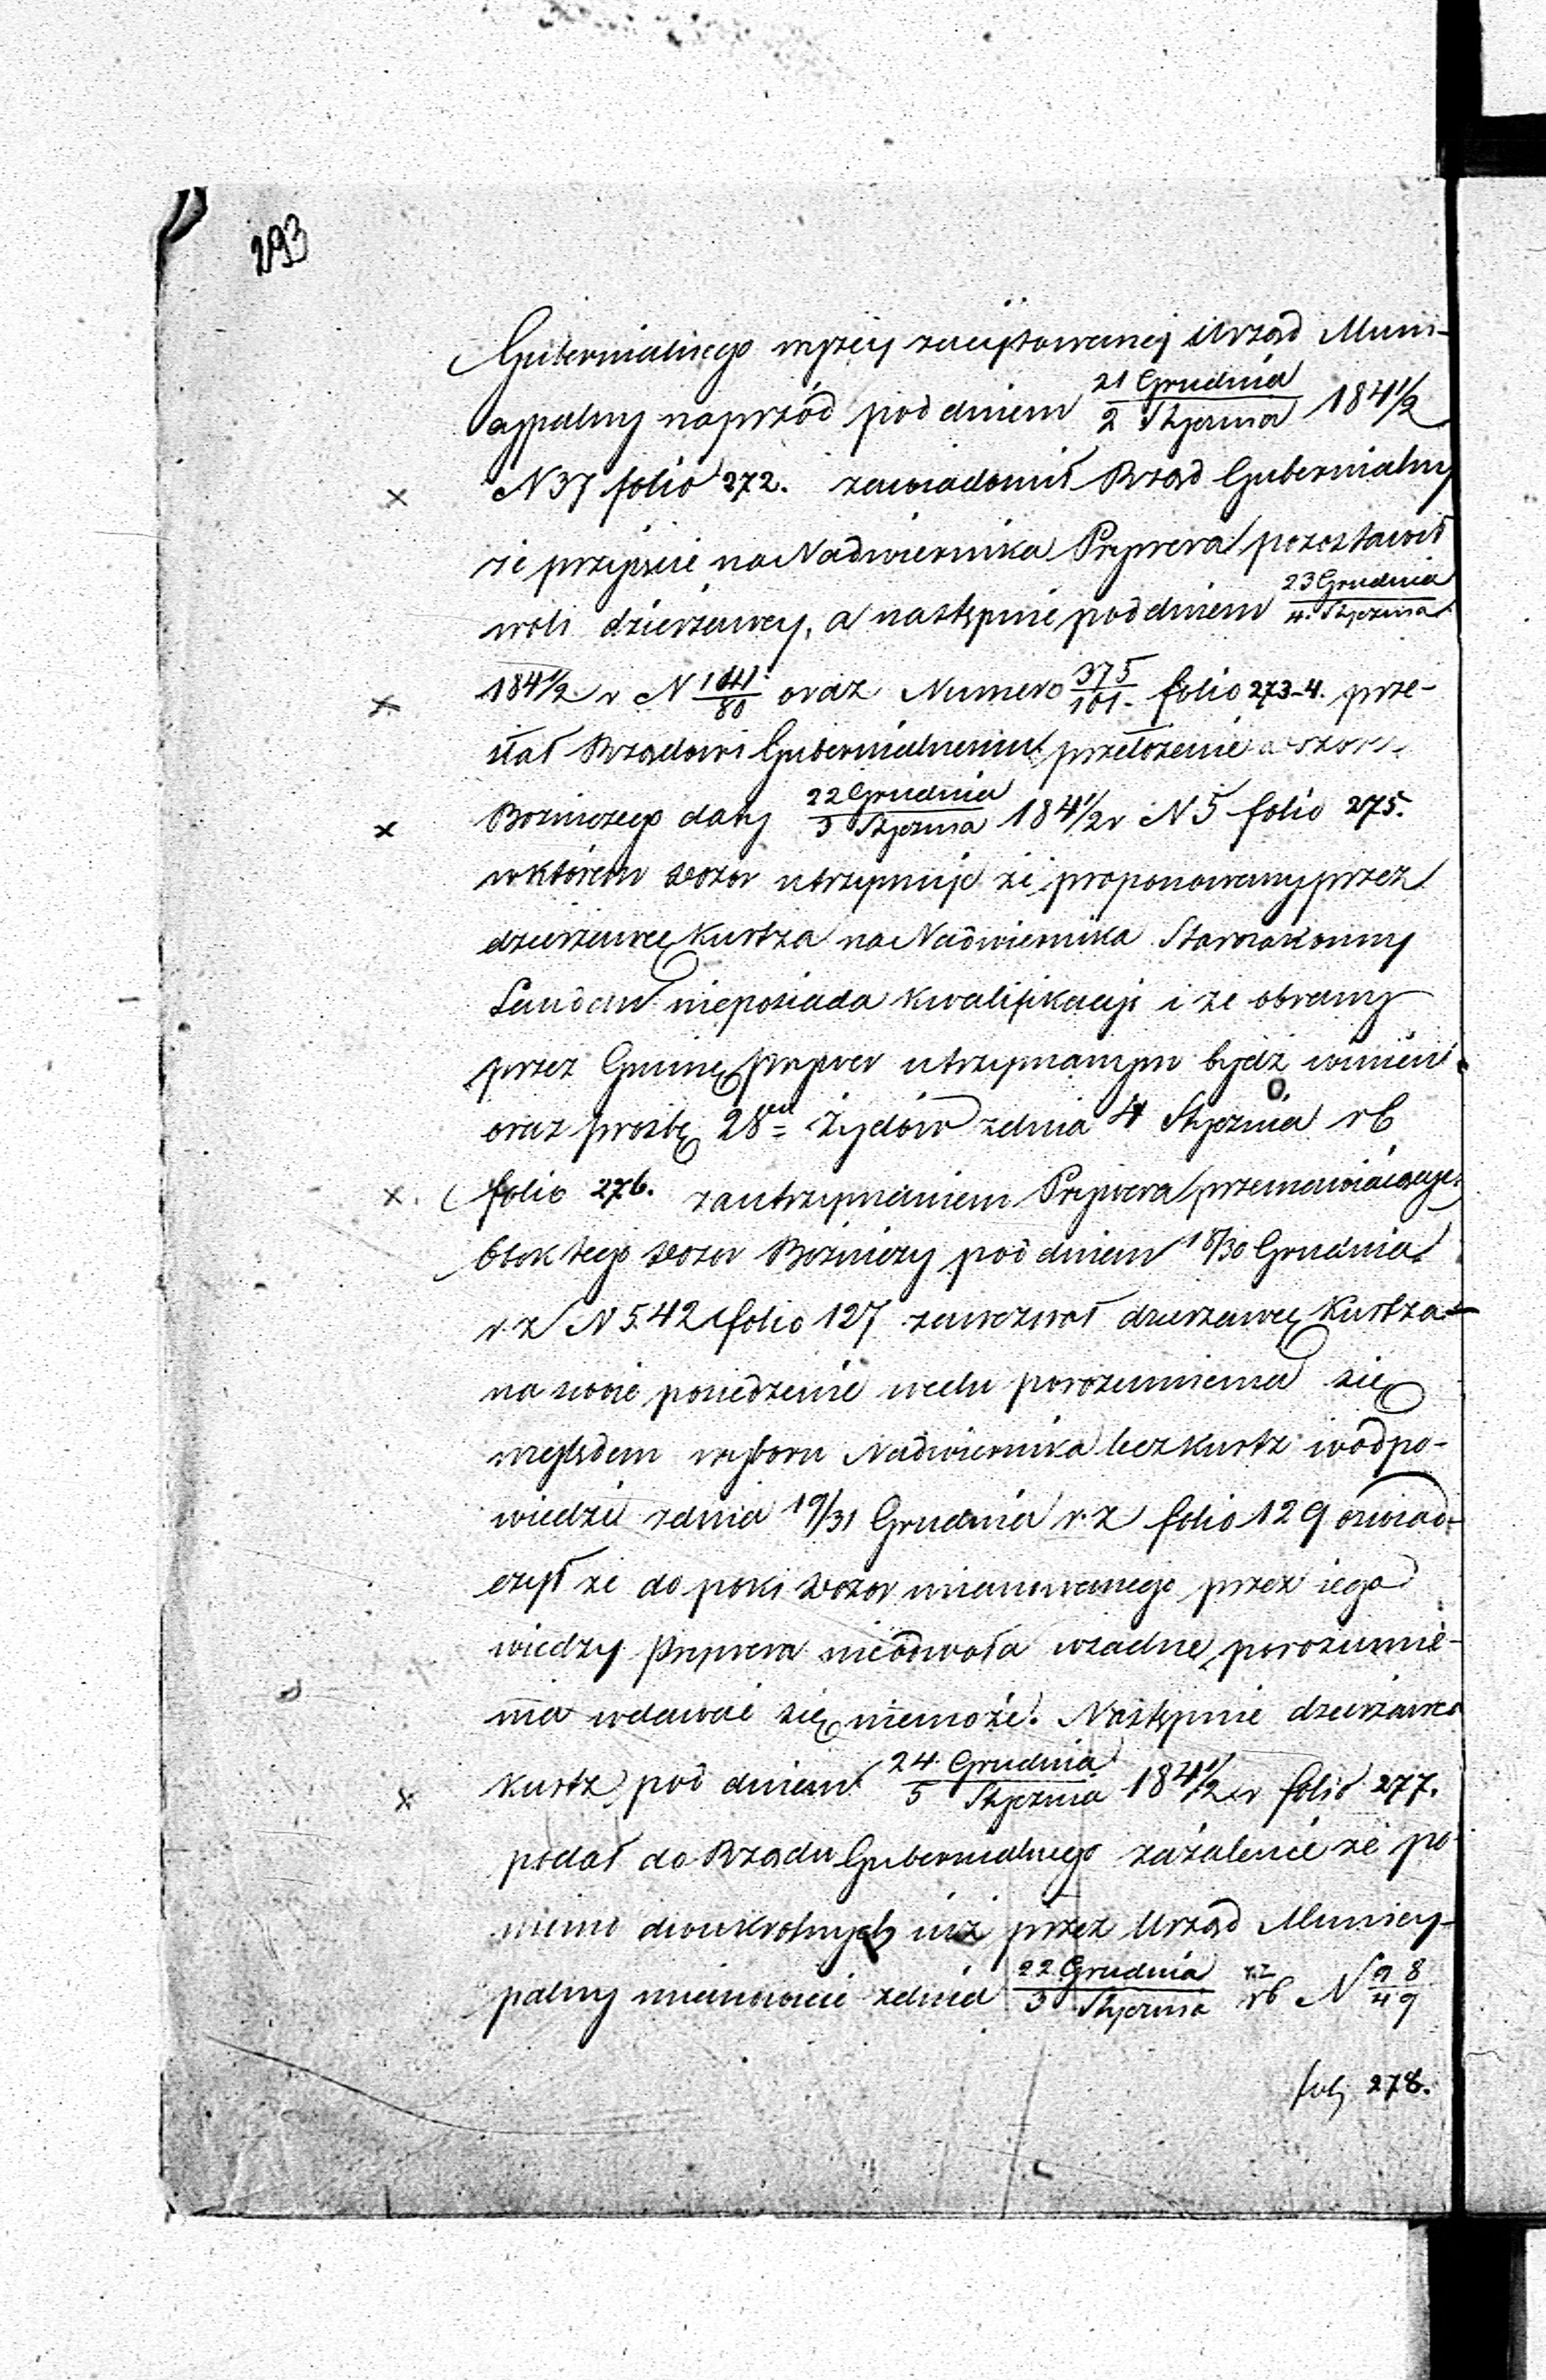 293
Gubernialnego wyżey zacytowaney Urząd Muni-
cypalny naprzód pod dniem 21 Grudnia/2 Stycznia 184 1/2
× N 37 folio 272. zawiadomił Rząd Gubernialny
że przyjęcie na Nadwiernika Prywera pozostawił
woli dzierżawcy, a następnie pod dniem 23 Grudnia/4. Stycznia
× 184 1/2 r N 141/80 oraz Numero 375/101. folio 273-4. prze-
słał Rządowi Gubernialnemu przełożenie
× Bożniczego daty 22 Grudnia/3 Stycznia 184 1/2 r N 5 folio 275.
w którem dozor utrzymuje że proponowany przez
dzierżawcę Kurtza na Nadwiernika Starozakonny
Landau nieposiada kwalifikacyi i że obrany
przez Gminę Prywer utrzymanym bydź winien
oraz prośbę 28miu Żydów z dnia 4 Stycznia rb
× folio 276. za utrzymaniem Prywera przemawiaiącye
Obok tego dozor Bożniczy pod dniem 18/30 Grudnia
r. z N 542 folio 127 zawezwał dzierżawcę Kurtza
na swoie posiedzenie wcelu porozumienia się
względem wyboru Nadwiernika lecz Kurtz w odpo-
wiedzi z dnia 19/31 Grudnia r. z folio 129 oświad-
czył że do poki dozor mianowanego przez iego
wiedzy Prywera nieodwoła w żadne porozumie-
nia wdawać się niemoże. Następnie dzierżawca
× Kurtz pod dniem 24. Grudnia/5 Stycznia 184 1/2 r folio 277.
podał do Rządu Gubernialnego zażalenie że po-
mimo dwukrotnych iuż przez Urząd Municy-
palny mianowicie z dnia 22 Grudnia/3 Stycznia r.z/rb N 98/49
folj 278.